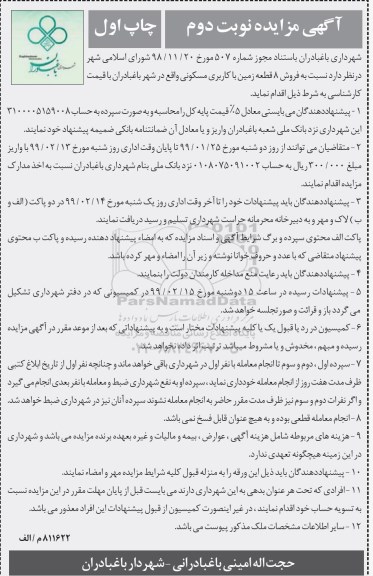 آگهی مزایده نوبت دوم
چاپ اول
شهرداری باغبادران باستناد مجوز شماره ۵۰۷ مورخ ۹۸/۱۱/۲۰ شورای اسلامی شهر
درنظر دارد نسبت به فروش ۸ قطعه زمین با کاربری مسکونی واقع در شهر باغبادران با قیمت
کارشناسی به شرط ذیل اقدام نماید.
۱- پیشنهاددهندگان می بایستی معادل ۵٪ قیمت پایه کل را محاسبه و به صورت سپرده به حساب ۳۱۰۰۰۰۵۱۵۹۰۰۸
این شهرداری نزد بانک ملی شعبه باغبادران واریز و یا معادل آن ضمانتنامه بانکی ضمیمه پیشنهاد خود نمایند.
۲- متقاضیان می توانند از روز دو شنبه مورخ ۹۹/۰۱/۲۵ تا پایان وقت اداری روز شنبه مورخ ۹۹/۰۲/۱۳ با واریز
مبلغ ۳۰۰/۰۰۰ ریال به حساب ۰۱۰۸۰۷۵۰۹۱۰۰۲ نزد بانک ملی بنام شهرداری باغبادران نسبت به اخذ مدارک
مزایده اقدام نمایند.
۳- پیشنهاددهندگان باید پیشنهادات خود را تا آخر وقت اداری روز یک شنبه مورخ ۹۹/۰۲/۱۴ در دو پاکت (الف و
ب) لاک و مهر و به دبیرخانه محرمانه حراست شهرداری تسلیم و رسید دریافت نمایند.
پاکت الف محتوی سپرده و برگ شرایط آگهی و اسناد مزایده که به امضاء پیشنهاد دهنده رسیده و پاکت ب محتوی
پیشنهاد متقاضی که با عدد و حروف خوانا نوشته و زیر آن را امضاء و مهر کرده باشد.
۴- پیشنهاددهندگان باید رعایت منع مداخله کارمندان دولت را بنمایند.
۵- پیشنهادات رسیده در ساعت ۱۵ دوشنبه مورخ ۹۹/۰۲/۱۵ در کمیسیونی که در دفتر شهرداری تشکیل
می گردد باز و قرائت و صورتجلسه خواهد شد.
۶- کمیسیون در رد یا قبول یک یا کلیه پیشنهادات مختار است و به پیشنهاداتی که بعد از موعد مقرر در آگهی مزایده
رسیده و مبهم ، مخدوش و یا مشروط میباشد ترتیب اثر داده نخواهد شد.
۷- سپرده اول ، دوم و سوم تا انجام معامله با نفر اول در شهرداری باقی خواهد ماند و چنانچه نفر اول از تاریخ ابلاغ کتبی
ظرف مدت هفت روز از انجام معامله خودداری نماید ، سپرده او به نفع شهرداری ضبط و معامله با نفر بعدی انجام می گیرد
و اگر نفرات دوم و سوم نیز ظرف مدت مقرر حاضر به انجام معامله نشوند سپرده آنان نیز در شهرداری ضبط خواهد شد.
۸- انجام معامله قطعی بوده و به هیچ عنوان قابل فسخ نمی باشد.
۹- هزینه های مربوطه شامل هزینه آگهی ، عوارض ، بیمه و مالیات و غیره بعهده برنده مزایده می باشد و شهرداری
در این زمینه هیچگونه تعهدی ندارد.
۱۰- پیشنهاددهندگان باید ذیل این ورقه را به منزله قبول کلیه شرایط مزایده مهر و امضاء نمایند.
۱۱- افرادی که تحت هر عنوان بدهی به این شهرداری دارند می بایست قبل از پایان مهلت مقرر در این مزایده نسبت
به تسویه حساب خود اقدام نمایند ، در غیر اینصورت کمیسیون از قبول پیشنهادات این افراد معذور می باشد.
۱۲- سایر اطلاعات مشخصات ملک مذکور پیوست می باشد.
۸۱۱۶۲۲ م / الف
حجت اله امینی باغبادرانی - شهردار باغبادران